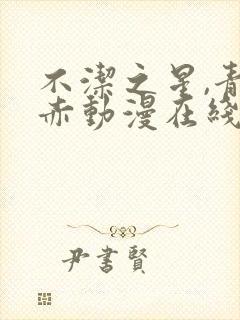 不潔之星,青
赤動漫在綫
尹書賢